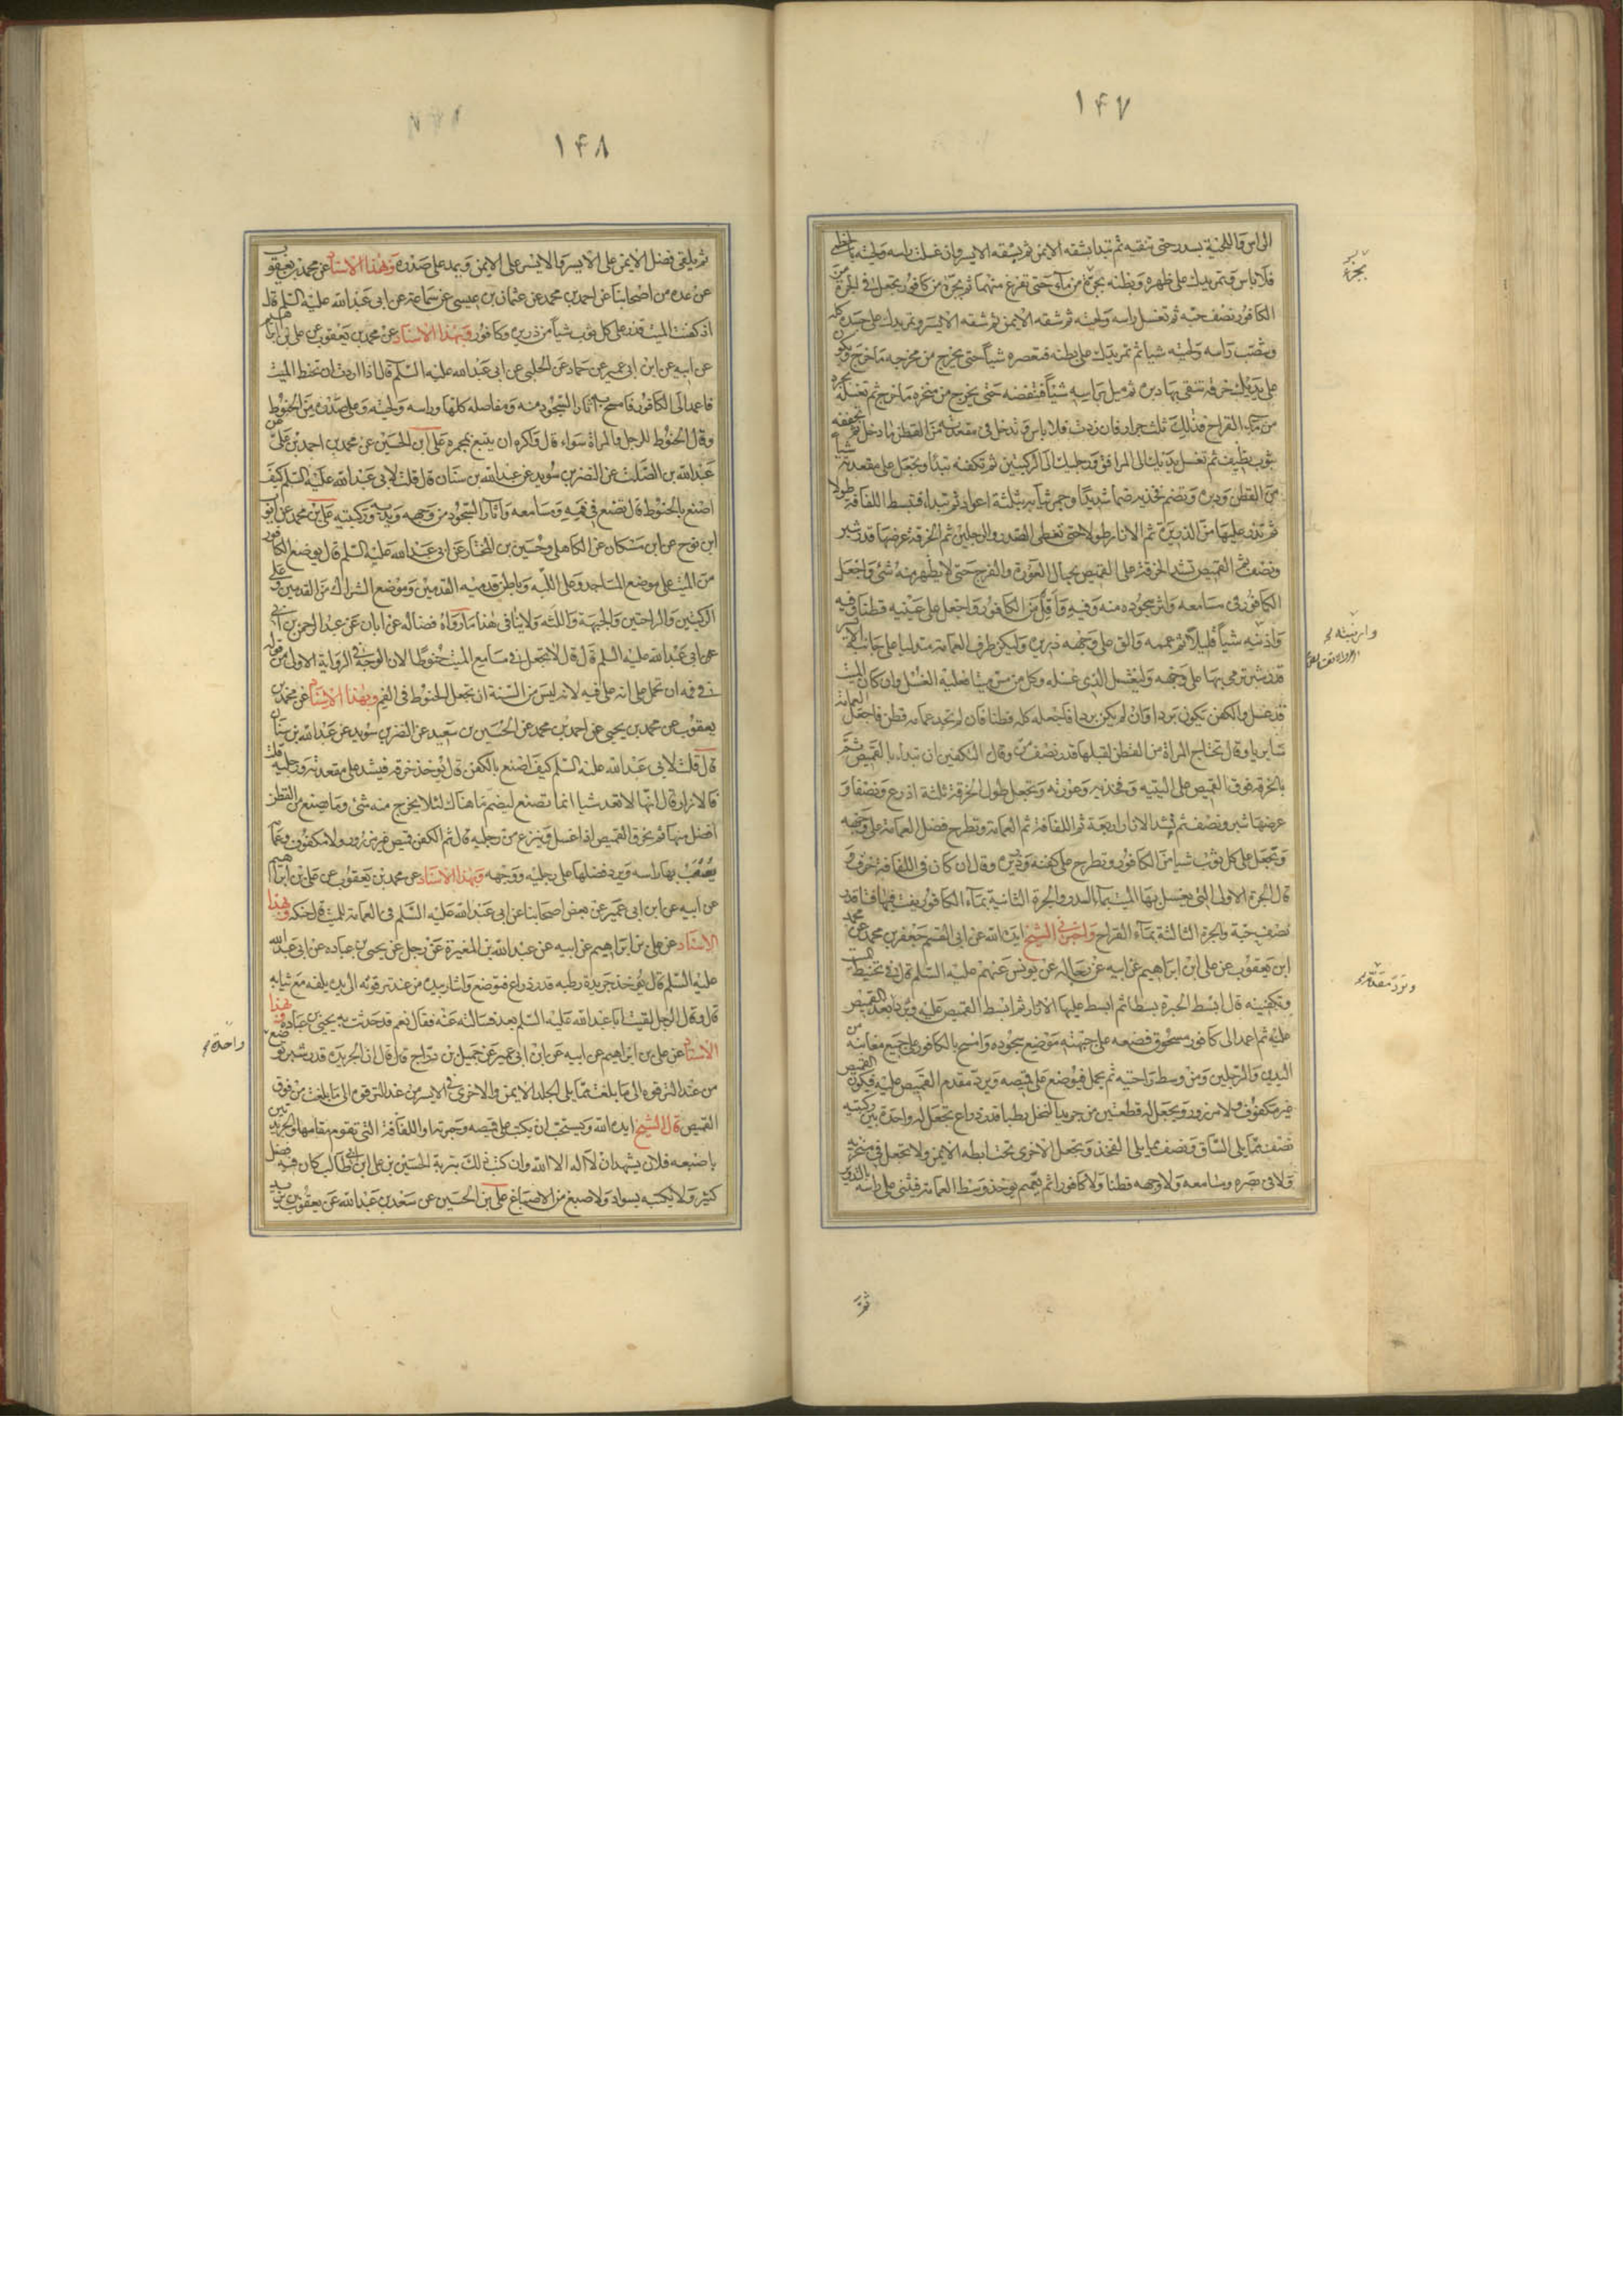 ١٤٧
الراس واللحية بسدر حتى تنقيه ثم تبدا بشقه الايمن ثم بشقه الايسر وان غسلت راسه ولحيته بالخطمى
فلا باس وتمر يدك على ظهره وبطنه بجرة من ماء حتى تفرغ منهما ثم بجرة من كافور تجعل فى الجرة من
الكافور نصف حبه ثم تغسل راسه ولحيته ثم شقه الايمن ثم شقه الايسر وتمر يدك على جسده كله
وتصب راسه ولحيته شيا ثم تمر يدك على بطنه فتعصره شياً حتى يخرج من مخرجه ما خرج ويكون
على يديك خرقة تنقى بها دبره ثم ميل براسه شيئاً فتنفضه حتى يخرج من منخره ما خرج ثم تغسله بجرة
من ماء القراح فذلك ثلث جرار فان زدت فلا باس وتدخل فى مقعدته من القطن ما دخل ثم تجففه
بثوب نظيف ثم تغسل يديك الى المرافق ورجليك الى الركبتين ثم تكفنه تبدأ وتجعل على مقعدته شيا
من القطن وذريرة وتضم فخذيه ضما شديدًا وجمر ثيابه بثلثة اعواد ثم تبدا فتبسط اللفافة طولا
ثم تذر عليها من الذريرة ثم الازار طولا حتى تغطى الصدر والرجلين ثم الخرقة عرضها قدر شبر
ونصف ثم القميص تشد الخرقة على القميص بحيال العورة والفرج حتى لا يظهر منه شئ واجعل
الكافور فى مسامعه واثر سجوده منه وفيه واقل من الكافور واجعل على عينيه قطنا وفيه
واذنيه شياً قليلاً ثم عممه والق على وجهه ذريرة وليكن طرف العمامة متدليا على جانبه الايسر
قدر شبر ترمى بها على وجهه وليغسل الذى غسله وكل من مس ميتا فعليه الغسل وان كان الميت
قد غسل والكفن يكون بردا وان لم يكن بردا فاجعله كله قطنا فان لم تجد عمامة قطن فاجعل العمامة
سابريا وقال تحتاج المراة من القطن لقبلها قدر نصف من وقال التكفين ان تبداء بالقميص ثم
بالخرقة فوق القميص على اليتيه وفخذيه وعورته وتجعل طول الخرقة ثلثة اذرع ونصفا و
عرضها شبر ونصف ثم تشد الازار اربعة ثم اللفافة ثم العمامة وتطرح فضل العمامة على وجهه
وتجعل على كل ثوب شيا من الكافور وتطرح على كفنه ذريرة وقال ان كان فى اللفافة خرق و
قال الجرة الاولى التى تغسل بها الميت بماء السدر والجرة الثانية بماء الكافور يفت فيها فتا قدر
نصف حبة والجرة الثالثة بماء القراح واخبرنى الشيخ ايده الله عن ابى القسم جعفر بن محمد عن محمد
ابن يعقوب عن على ابن ابراهيم عن ابيه عن رجاله عن يونس عنهم عليه السلم قال فى تحنيط الميت
وتكفينه قال ابسط الحبرة بسطا ثم ابسط عليها الازار ثم ابسط القميص عليه وترد مقدم القميص
عليه ثم اعمد الى كافور مسحوق فضعه على جبهته موضع سجوده وامسح بالكافور على جميع مغابنه من
اليدين والرجلين ومن وسط راحتيه ثم يحمل فيوضع على قميصه ويرد مقدم القميص عليه فيكون القميص
غير مكفوف ولا مزرور ويجعل له قطعتين من جريد النخل رطبا قدر ذراع تجعل له واحدة بين ركبتيه
نصف مما يلى الساق ونصف مما يلى الفخذ وتجعل الاخرى تحت ابطه الايمن ولا تجعل فى منخريه
ولا فى بصره ومسامعه ولا وجهه قطنا ولا كافورا ثم يعمم يوخذ وسط العمامة فيثنى على راسه بالتدوير
بجرة
وترد مقدم
ثم
١٤٨
ثم يلقى فضل الايمن على الايسر والايسر على الايمن ويمد على صدره وبهذا الاسناد عن محمد بن يعقوب
عن عدة من اصحابنا عن احمد بن محمد عن عثمان بن عيسى عن سماعة عن ابى عبد الله عليه السلم قال
اذ كفنت الميت فذر على كل ثوب شياً من ذريرة وكافور وبهذا الاسناد عن محمد بن يعقوب عن على بن ابراهيم
عن ابيه عن ابن ابى عمير عن حماد عن الحلبى عن ابى عبد الله عليه السلم قال اذا اردت ان تحنط الميت
فاعمد الى الكافور فامسح به اثار السجود منه ومفاصله كلها وراسه ولحيته وعلى صدره من الحنوط
وقال الحنوط للرجل والمراة سواء قال واكره ان يتبع بمجمرة على ابن الحسين عن محمد بن احمد بن على عن
عبد الله بن الصلت عن النضر بن سويد عن عبد الله بن سنان قال قلت لابى عبد الله عليه السلم كيف
اصنع بالحنوط قال تضع فى فمه ومسامعه واثار السجود من وجهه ويديه وركبتيه على بن محمد عن ايوب
ابن نوح عن ابن مسكان عن الكاهلى وحسين بن المختار عن ابى عبد الله عليه السلم قال يوضع الكافور
من الميت على موضع المساجد وعلى اللبه وباطن قدميه القدمين وموضع الشراك من القدمين وعلى
الركبتين والراحتين والجبهة واللبه ولا ينافى هذا ما رواه فضاله عن ابان عن عبد الرحمن بن ابى
عن ابى عبد الله عليه السلم قال قال لا تجعل فى مسامع الميت حنوطا لان الوجه فى الرواية الاولى من قوله
فى فيه ان تحمل على انه على فيه لانه ليس من السنة ان تجعل الحنوط فى الفم وبهذا الاسناد عن محمد بن
يعقوب عن محمد بن يحيى عن احمد بن محمد عن الحسين بن سعيد عن النضر بن سويد عن عبد الله بن سنان
قال قلت لابى عبد الله عليه السلم كيف اصنع بالكفن قال يوخذ خرقة فيشد على مقعدته ورجليه قلت
فالازار قال انها لا تعد شيا انما تصنع ليضم ما هناك لئلا يخرج منه شئ وما يصنع من القطن
افضل منها ثم يخرق القميص اذا غسل وينزع من رجليه قال ثم الكفن قميص غير مزرور ولا مكفوف وعمامة
يعصب بها راسه ويرد فضلها على رجليه ووجهه وبهذا الاسناد عن محمد بن يعقوب عن على بن ابراهيم
عن ابيه عن ابن ابى عمير عن بعض اصحابنا عن ابى عبد الله عليه السلم فى العمامة للميت قال حنكه وبهذا
الاسناد عن على بن ابراهيم عن ابيه عن عبد الله بن المغيرة عن رجل عن يحيى بن عباده عن ابى عبد الله
عليه السلم قال تؤخذ جريدة رطبه قدر ذراع فتوضع واشار بيده من عند ترقوته الى يده يلفه مع ثيابه
قال وقال الرجل لقيت ابا عبد الله عليه السلم بعد فسالته عنه فقال نعم قد حدثت به يحيى بن عباده وبهذا
الاسناد عن على بن ابراهيم عن ابيه عن ابن ابى عمير عن جميل بن دراج قال قال ان الجريدة قدر شبر توضع
من عند الترقوه الى ما بلغت مما يلى الجلد الايمن والاخرى فى الايسر من عند الترقوه الى ما بلغت من فوق
القميص قال الشيخ ايده الله ويستحب ان يكتب على قميصه وحبرته او اللفافة التى تقوم مقامها والجريدتين
باصبعه فلان يشهد ان لا اله الا الله وان كتب ذلك بتربة الحسين بن على ابن ابى طالب كان فيه فضل
كثير ولا يكتبه بسواد ولا صبغ من الاصباغ على بن الحسين عن سعد بن عبد الله عن يعقوب بن يزيد
واحدة